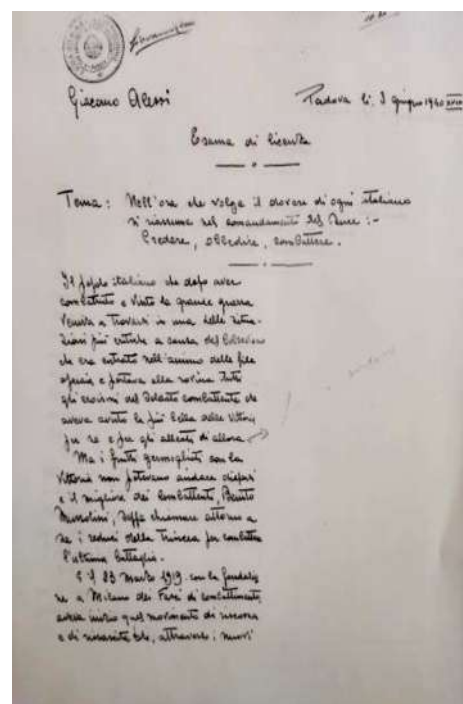 Giacomo Alessi
Padova li. 3 giugno 1940 XVIII
Esame di licenza
Tema: Nell'ora che volge il dovere di ogni italiano
si riassume nel comandamento del Duce:-
Credere, obbedire, combattere.
Il popolo italiano che dopo aver
combattuto e vinto la grande guerra
veniva a trovarsi in una delle situa-
zioni più critiche a causa del
che era entrato nell'animo delle file
operaie e portava alla rovina tutti
gli eroismi del soldato combattente che
aveva avuto la più bella delle vittorie
per se e per gli alleati di allora
Ma i frutti germogliati con la
vittoria non potevano andare dispersi
e il migliore dei combattenti, Benito
Mussolini, seppe chiamare attorno a
se i reduci della trincea per combattere
l'ultima battaglia.
E il 23 marzo 1919 con la fondazio
ne a Milano dei Fasci di combattimento,
aveva inizio quel movimento di riscossa
e di rinascita che, attraverso i nuovi